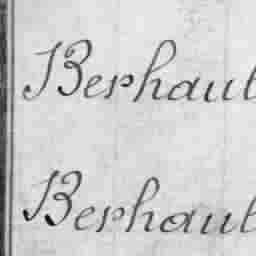 Berhaul
Berhaul